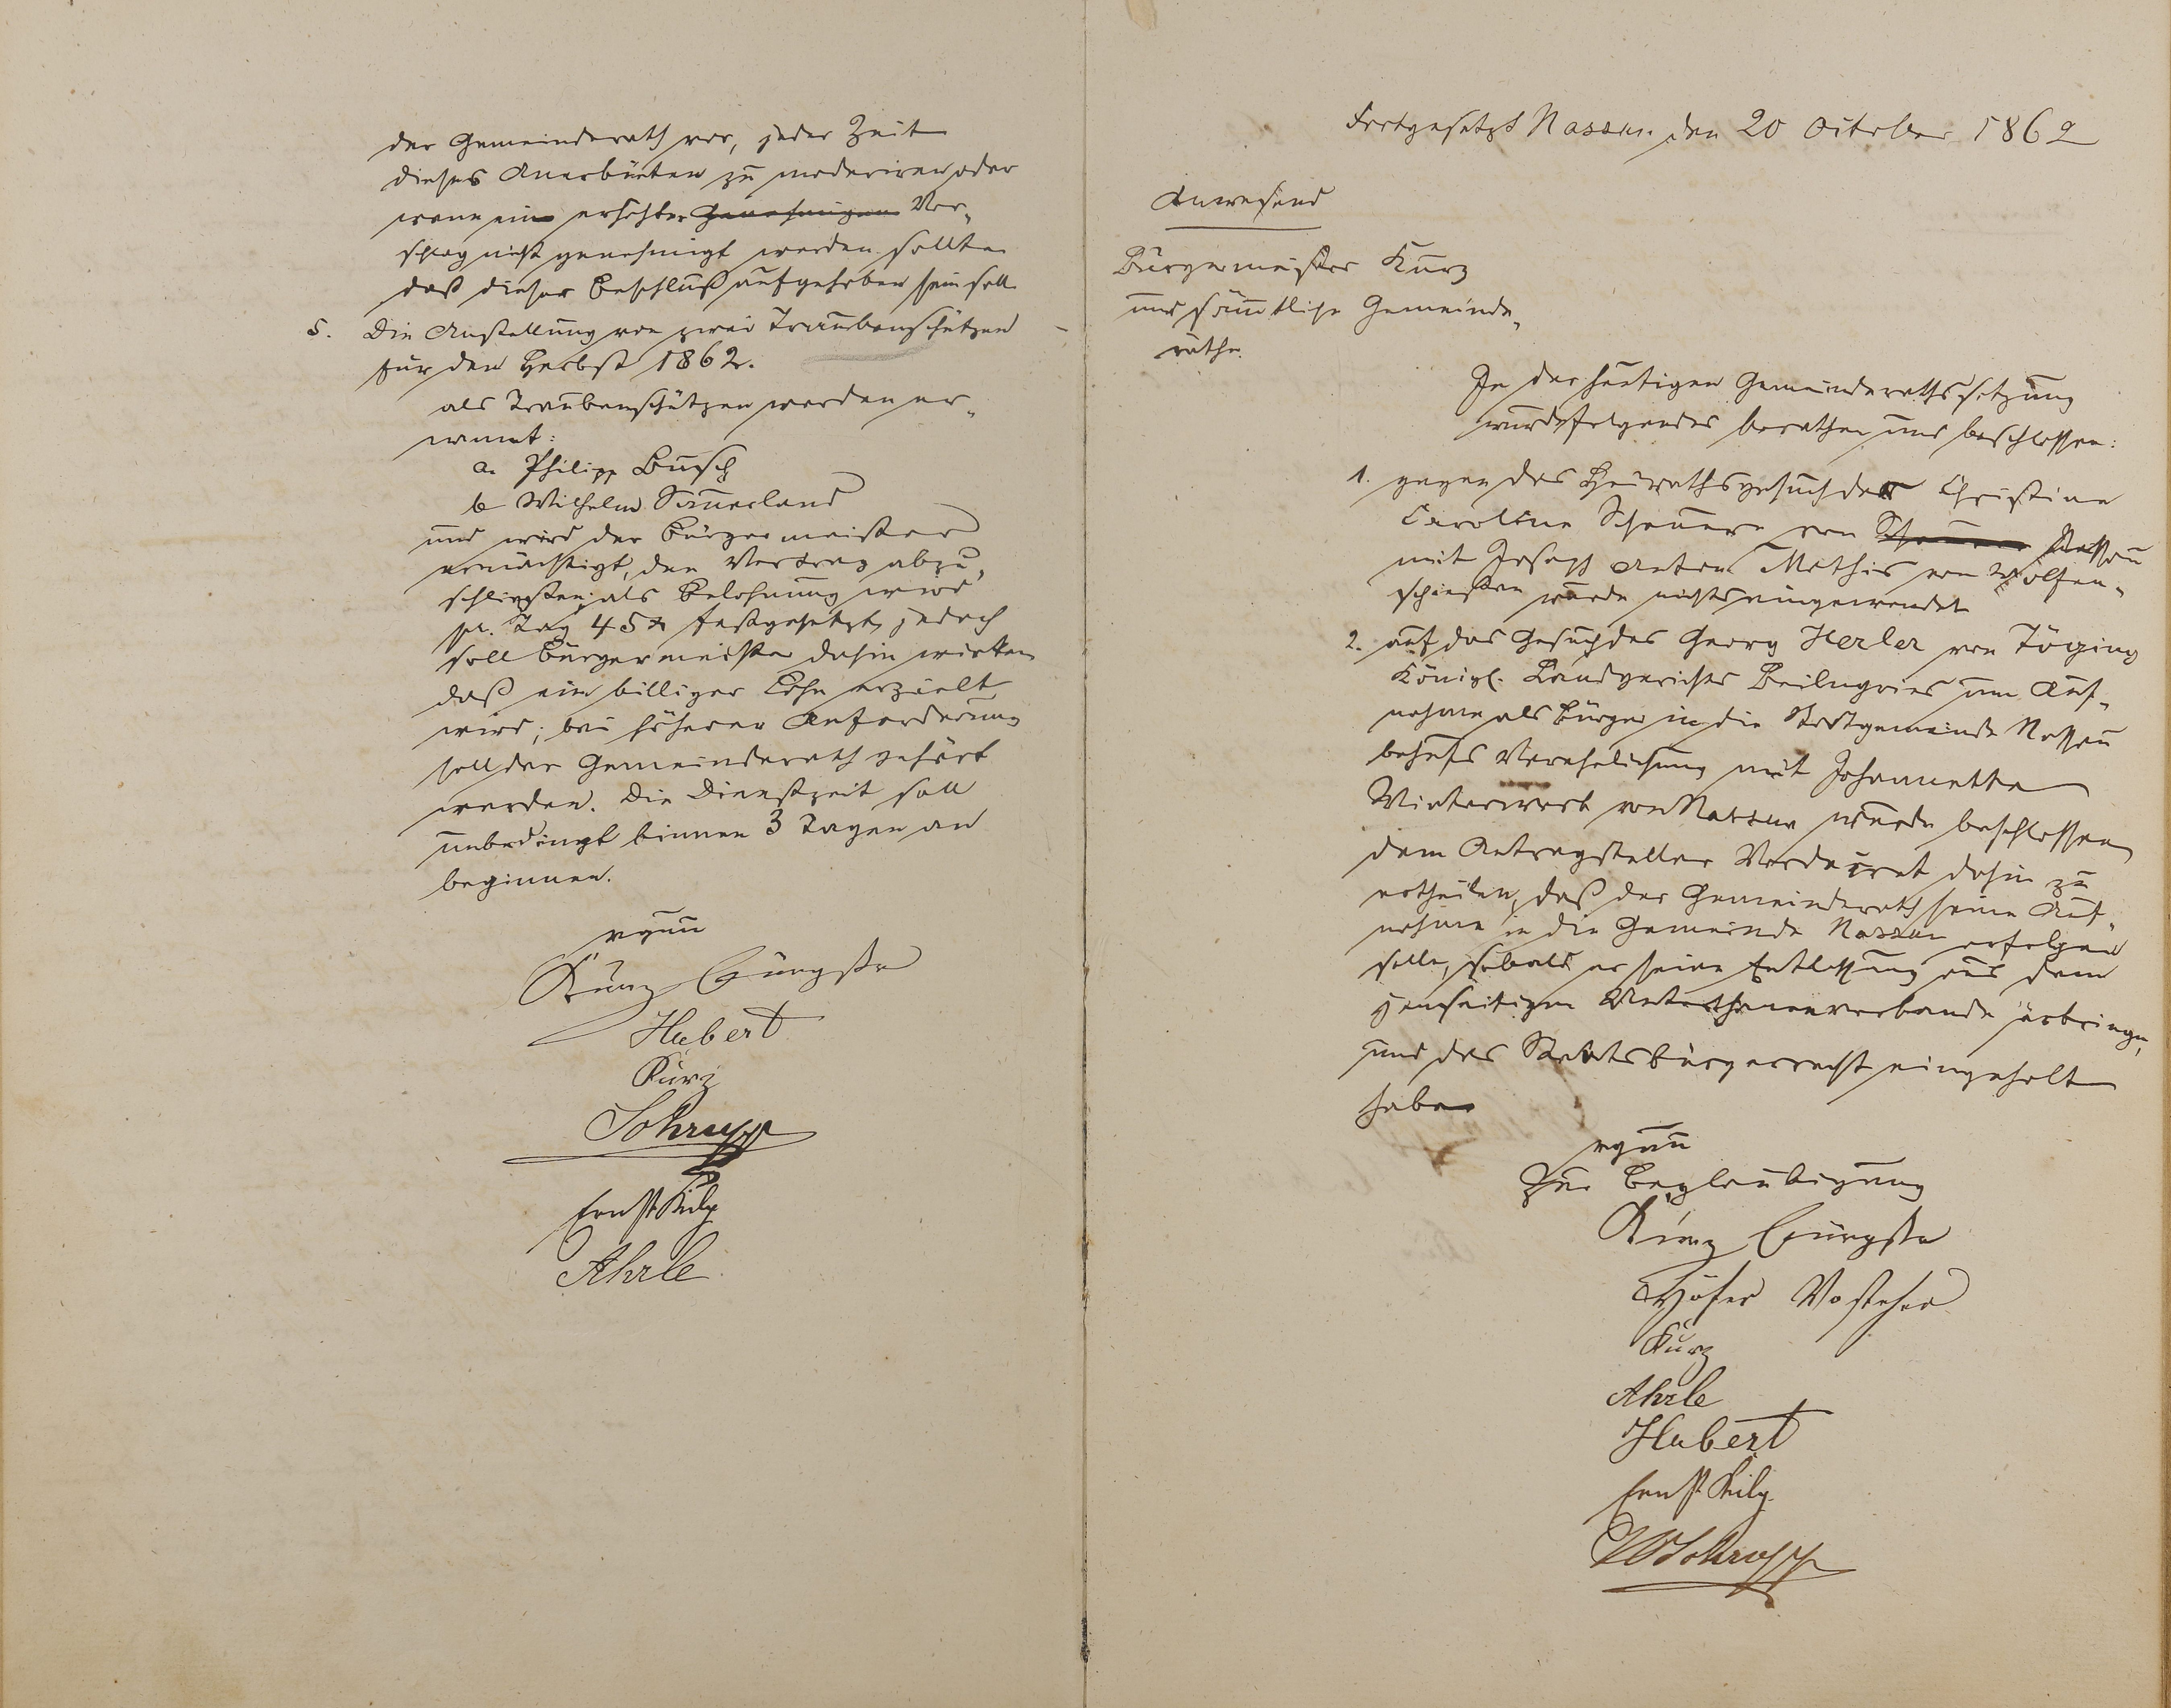 der Gemeinderath vor, jeder Zeit
dieses Anerbieten zu moderiren oder
wenn ein erhöhter Genehmigen Vor-
schlag nicht genehmigt werden sollte
daß dieser Beschluß aufgehoben sein soll.
5. Die Anstellung von zwei Traubenschützen
für den Herbst 1862.
als Traubenschützen werden er-
nannt:
a. Philipp Busch
b Wilhelm Sauerland
und wird der Bürgermeister
ermächtigt, den Vertrag abzu-
schließen; als Belohnung wird
pr. Tag 45 x festgesetzt, jedoch
soll Bürgermeister dahin wirken
daß ein billiger Lohn erzielt
wird; bei höherer Anforderung
soll der Gemeinderath gehört
werden. Die Dienstzeit soll
unbedingt binnen 3 Tagen an
beginnen.
vgnu
Kurz Bürgstr
Hubert
Kurz
Schrupp
Ernst Kilp
Ahrle
Fortgesetzt Nassau den 20 October 1862
Anwesend
Bürgermeister Kurz
und sämtliche Gemeinde-
räthe.
In der heutigen Gemeinderathssitzung
wurde folgendes berathen und beschlossen:
1. gegen das Heirathsgesuch der Christine
Caroline Scheuern von Scheuern Nassau
mit Joseph Anton Mathis von Wolfen-
schießen wurde nichts eingewendet
2. auf das Gesuch des Georg Herler von Töging
Königl. Landgerichts Beilngries um Auf-
nahme als Bürger in die Stadtgemeinde Nassau
behufs Verehelichung mit Johannette
Winterwerb von Nassau wurde beschlossen
dem Antragsteller Verdecret dahin zu
ertheilen, daß der Gemeinderath seine Auf-
nahme in die Gemeinde Nassau erfolgen
solle, sobald er seine Entlassung aus dem
jenseitigen Unterthanenverbande erbringe,
und das Staatsbürgerrecht eingeholt
habe
vgnu
Zur Beglaubigung
Kurz Bürgstr
Höfer Vosteher
Kurz
Ahrle
Hubert
Ernst Kilp
W Schrupp